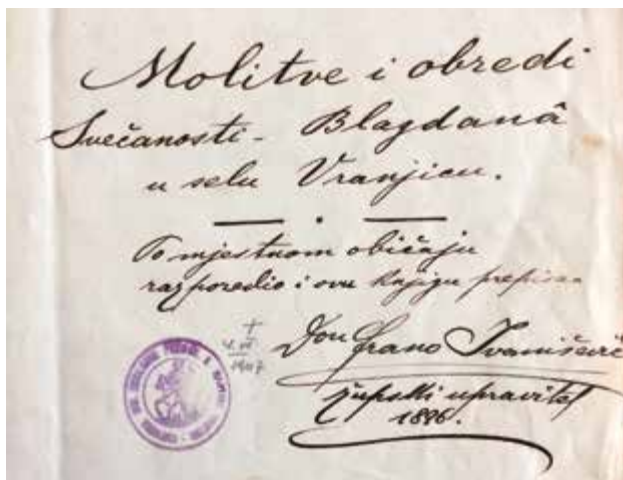 Molitve i obredi
Svečanosti - Blagdanâ
u selu Vranjicu.
Po mjestnom običaju
razporedio i ovu knjigu prepisao
Don Frano Ivanišević
župski upravitelj
1896.
†
1947